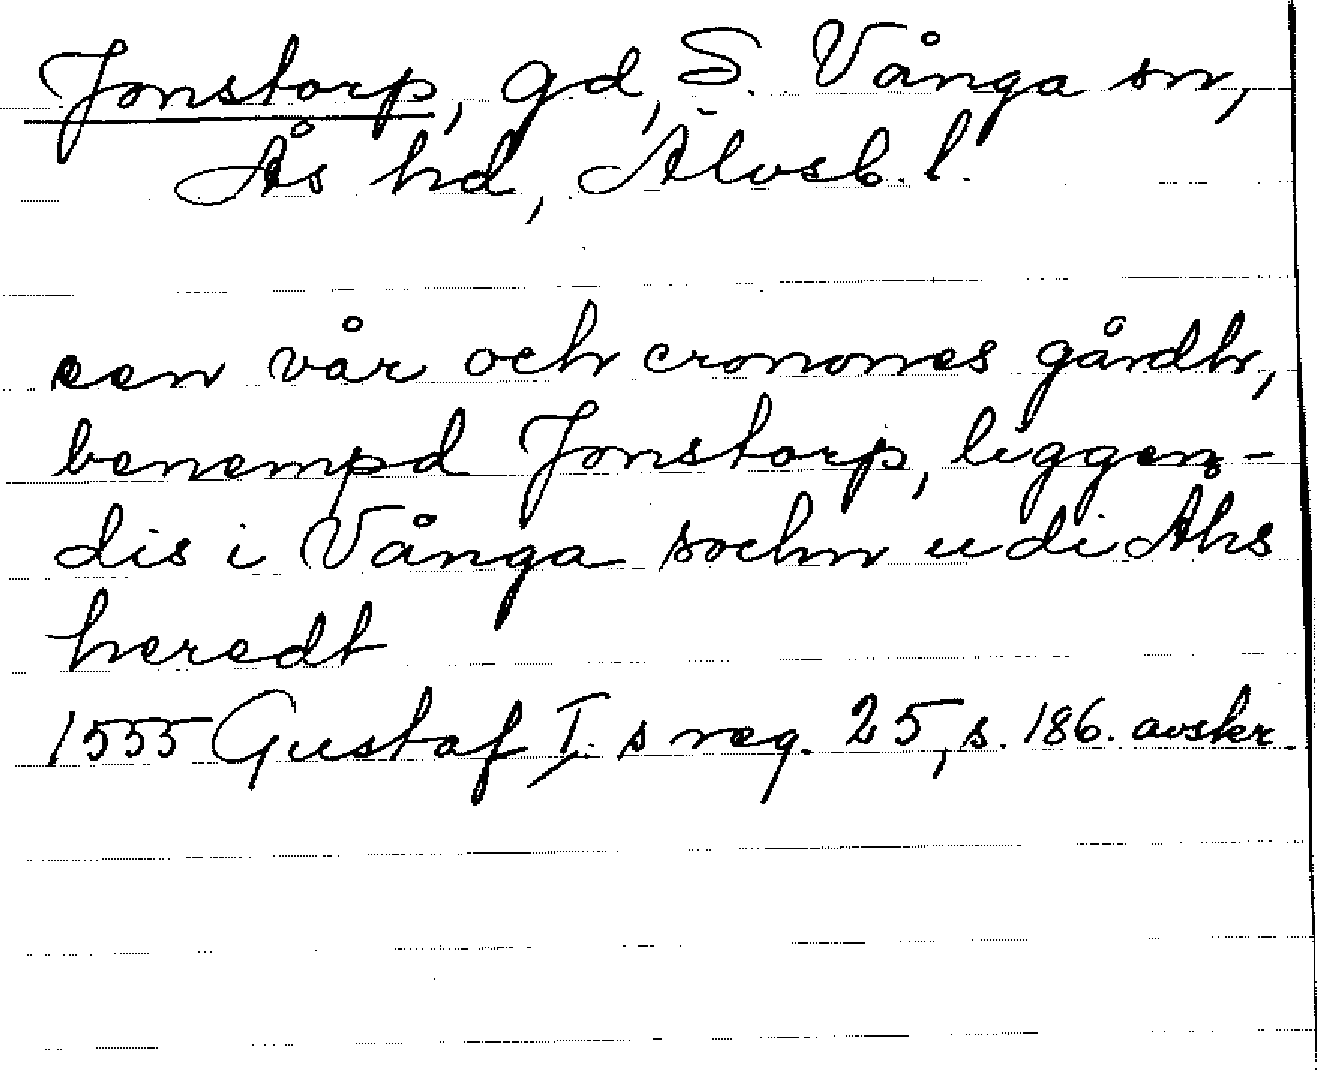 Jonstorp, gd, S. Vånga sn,
Ås hd, Älvsb. l.
een vår och cronones gårdh,
benempd Jonstorp, liggen-
dis i Vånga sochn udi Ahs
heredt
1555 Gustaf I. s reg. 25, s. 186. avskr.